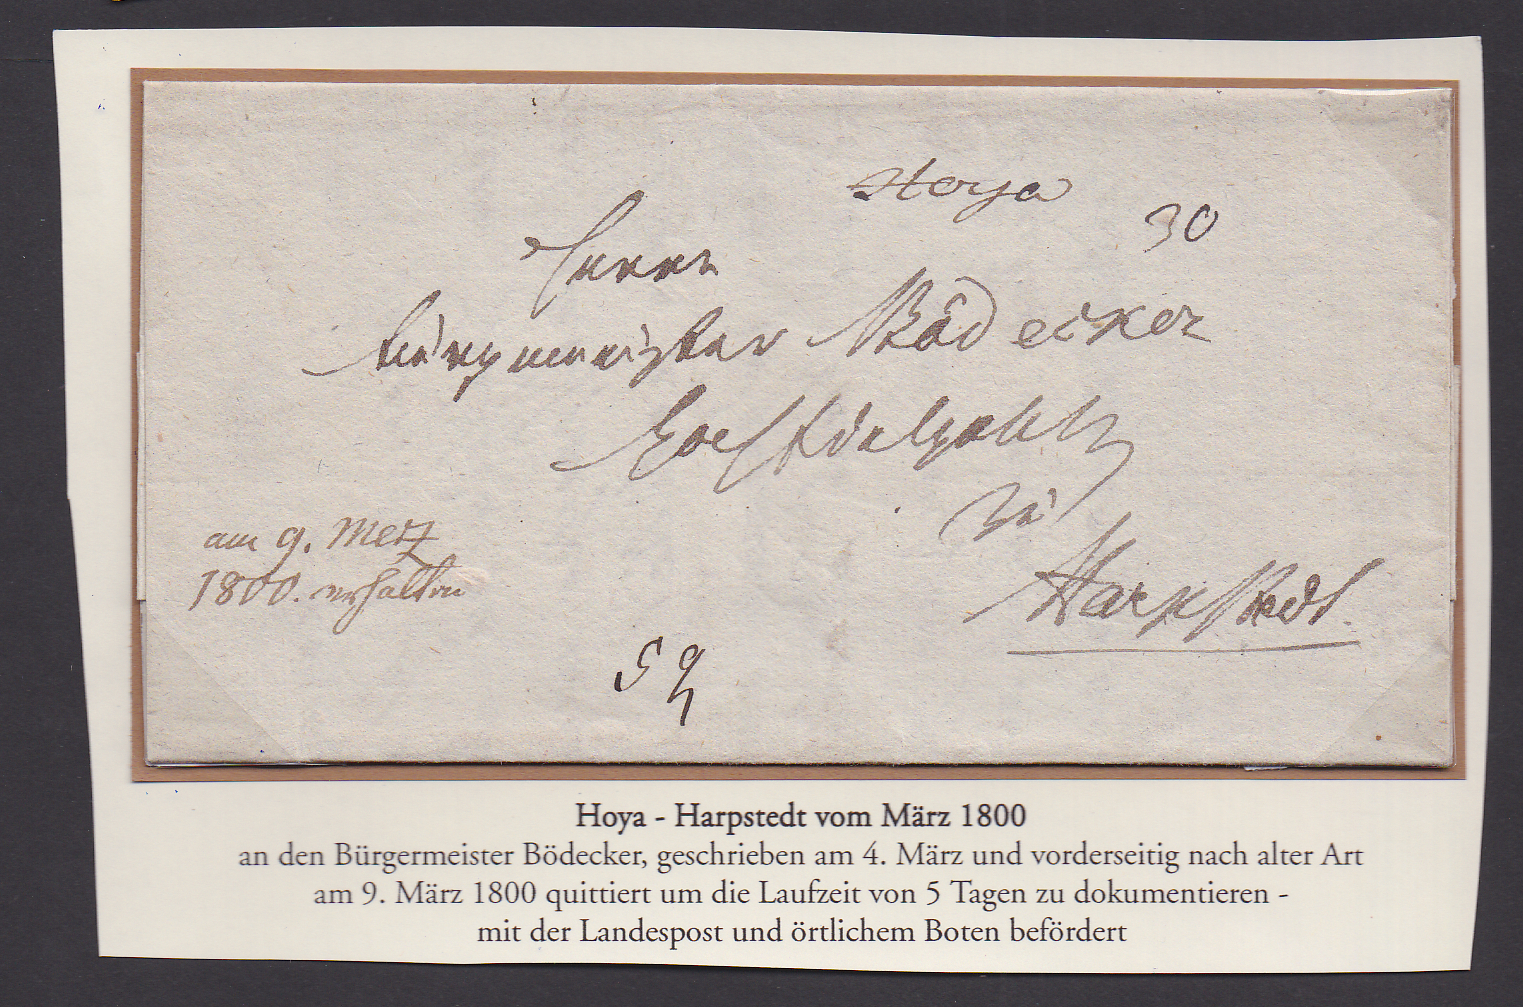 Hoya
30
Herrn
bürgmeister Bödecker
Hochedelgebl
zu
Harpstedt.
am 9. Merz
1800. erhalten
Hoya - Harpstedt vom März 1800
an den Bürgermeister Bödecker, geschrieben am 4. März und vorderseitig nach alter Art
am 9. März 1800 quittiert um die Laufzeit von 5 Tagen zu dokumentieren -
mit der Landespost und örtlichem Boten befördert